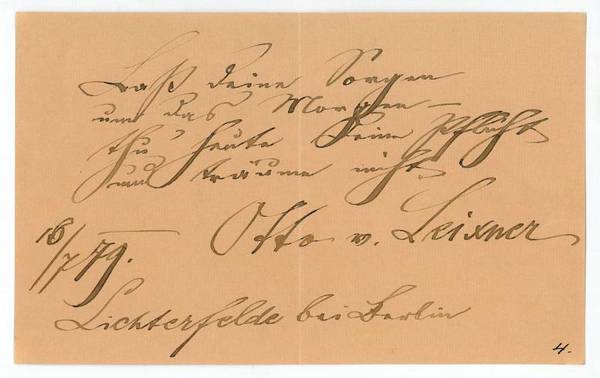 Laß deine Sorgen
um das Morgen –
thu' heute deine Pflicht
und träume nicht.
Otto v. Leixner
18/7 79.
Lichterfelde bei Berlin
4.